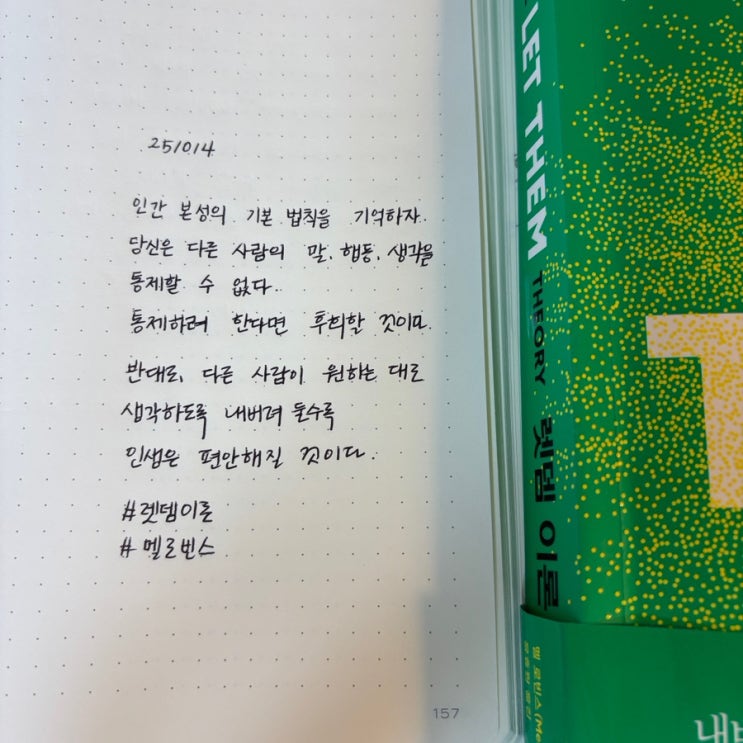 251014
인간 본성의 기본 법칙을 기억하자.
당신은 다른 사람의 말, 행동, 생각을
통제할 수 없다.
통제하려 한다면 후회할 것이며.
반대로, 다른 사람이 원하는 대로
생각하도록 내버려 둘수록
인생은 편안해질 것이다.
#렛뎀이론
#멜로빈스
157
LET THEM THEORY 렛뎀 이론
멜 로빈스 (Me
내버